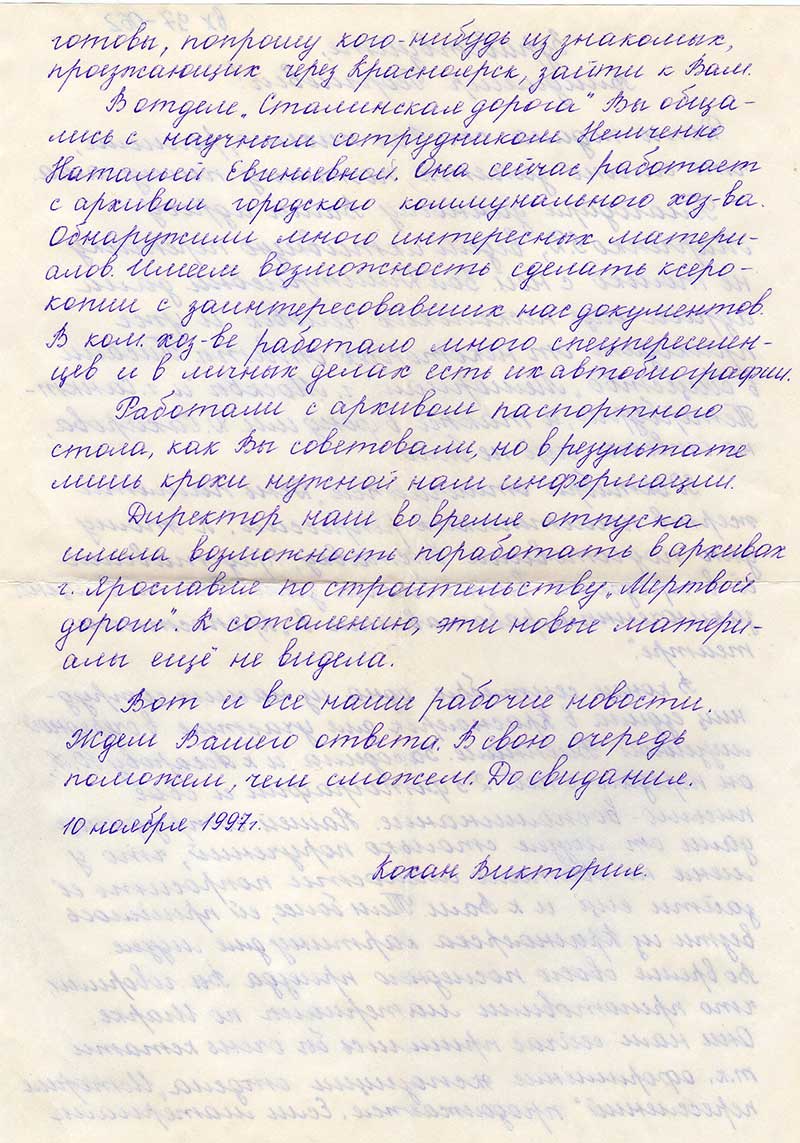 готовы, попрошу кого-нибудь из знакомых,
проезжающих через Красноярск, зайти к Вам.
В отделе „Сталинская дорога" Вы обща-
лись с научным сотрудником Немченко
Натальей Евгеньевной. Она сейчас работает
с архивом городского коммунального хоз-ва.
Обнаружили много интересных матери-
алов. Имеем возможность сделать ксеро-
копии с заинтересовавших нас документов.
В ком. хоз-ве работало много спецпереселен-
цев и в личных делах есть их автобиографии.
Работали с архивом паспортного
стола, как Вы советовали, но в результате
лишь крохи нужной нам информации.
Директор наш во время отпуска
имела возможность поработать в архивах
г. Ярославля по строительству „Мертвой
дороги". К сожалению, эти новые матери-
алы ещё не видела.
Вот и все наши рабочие новости.
Ждем Вашего ответа. В свою очередь
поможем, чем сможем. До свидания.
10 ноября 1997г.
Кохан Виктория.